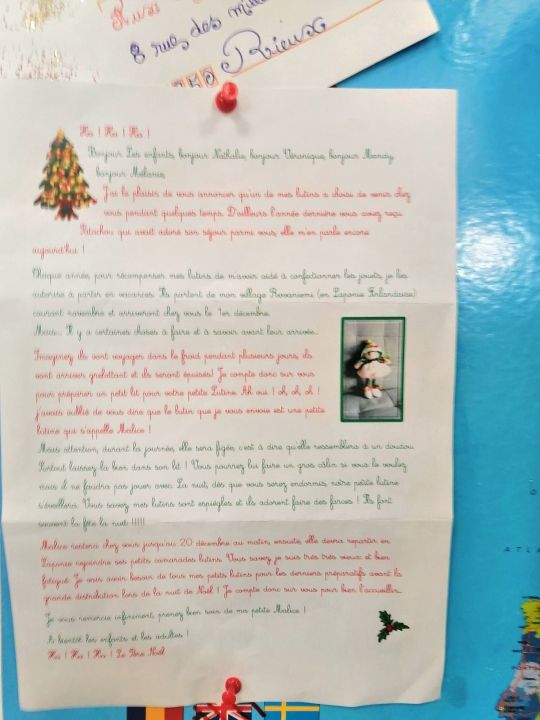 8 rue des
Rieux
Ha ! Ha ! Ha !
Bonjour Les enfants, bonjour Nathalie, bonjour Véronique, bonjour Mandy,
bonjour Mélanie,
J'ai le plaisir de vous annoncer qu'un de mes lutins a choisi de venir chez
vous pendant quelques temps. D'ailleurs l'année dernière vous aviez reçu
Patachou qui avait adoré son séjour parmi vous, elle m'en parle encore
aujourd'hui !
Chaque année, pour récompenser mes lutins de m'avoir aidé à confectionner les jouets, je les
autorise à partir en vacances. Ils partent de mon village Rovaniemi (en Laponie Finlandaise)
courant novembre et arriveront chez vous le 1er décembre.
Mais... Il y a certaines choses à faire et à savoir avant leur arrivée...
Imaginez ils vont voyager dans le froid pendant plusieurs jours, ils
vont arriver grelottant et ils seront épuisés! Je compte donc sur vous
pour préparer un petit lit pour votre petite Lutine. Ah oui ! oh, oh, oh !
j'avais oublié de vous dire que le lutin que je vous envoie est une petite
lutine qui s'appelle Malice !
Mais attention, durant la journée, elle sera figée, c'est à dire qu'elle ressemblera à un doudou.
Surtout laissez-la bien dans son lit ! Vous pourrez lui faire un gros câlin si vous le voulez
mais il ne faudra pas jouer avec. La nuit, dès que vous serez endormis, notre petite lutine
s'éveillera. Vous savez mes lutins sont espiègles et ils adorent faire des farces ! Ils font
souvent la fête la nuit !!!!!
Malice restera chez vous jusqu'au 20 décembre au matin, ensuite, elle devra repartir en
Laponie rejoindre ses petits camarades lutins. Vous savez je suis très très vieux et bien
fatigué. Je vais avoir besoin de tous mes petits lutins pour les derniers préparatifs avant la
grande distribution lors de la nuit de Noël ! Je compte donc sur vous pour bien l'accueillir.
Je vous remercie infiniment, prenez bien soin de ma petite Malice !
A bientôt les enfants et les adultes !
Ha ! Ha ! Ha ! Le Père Noël